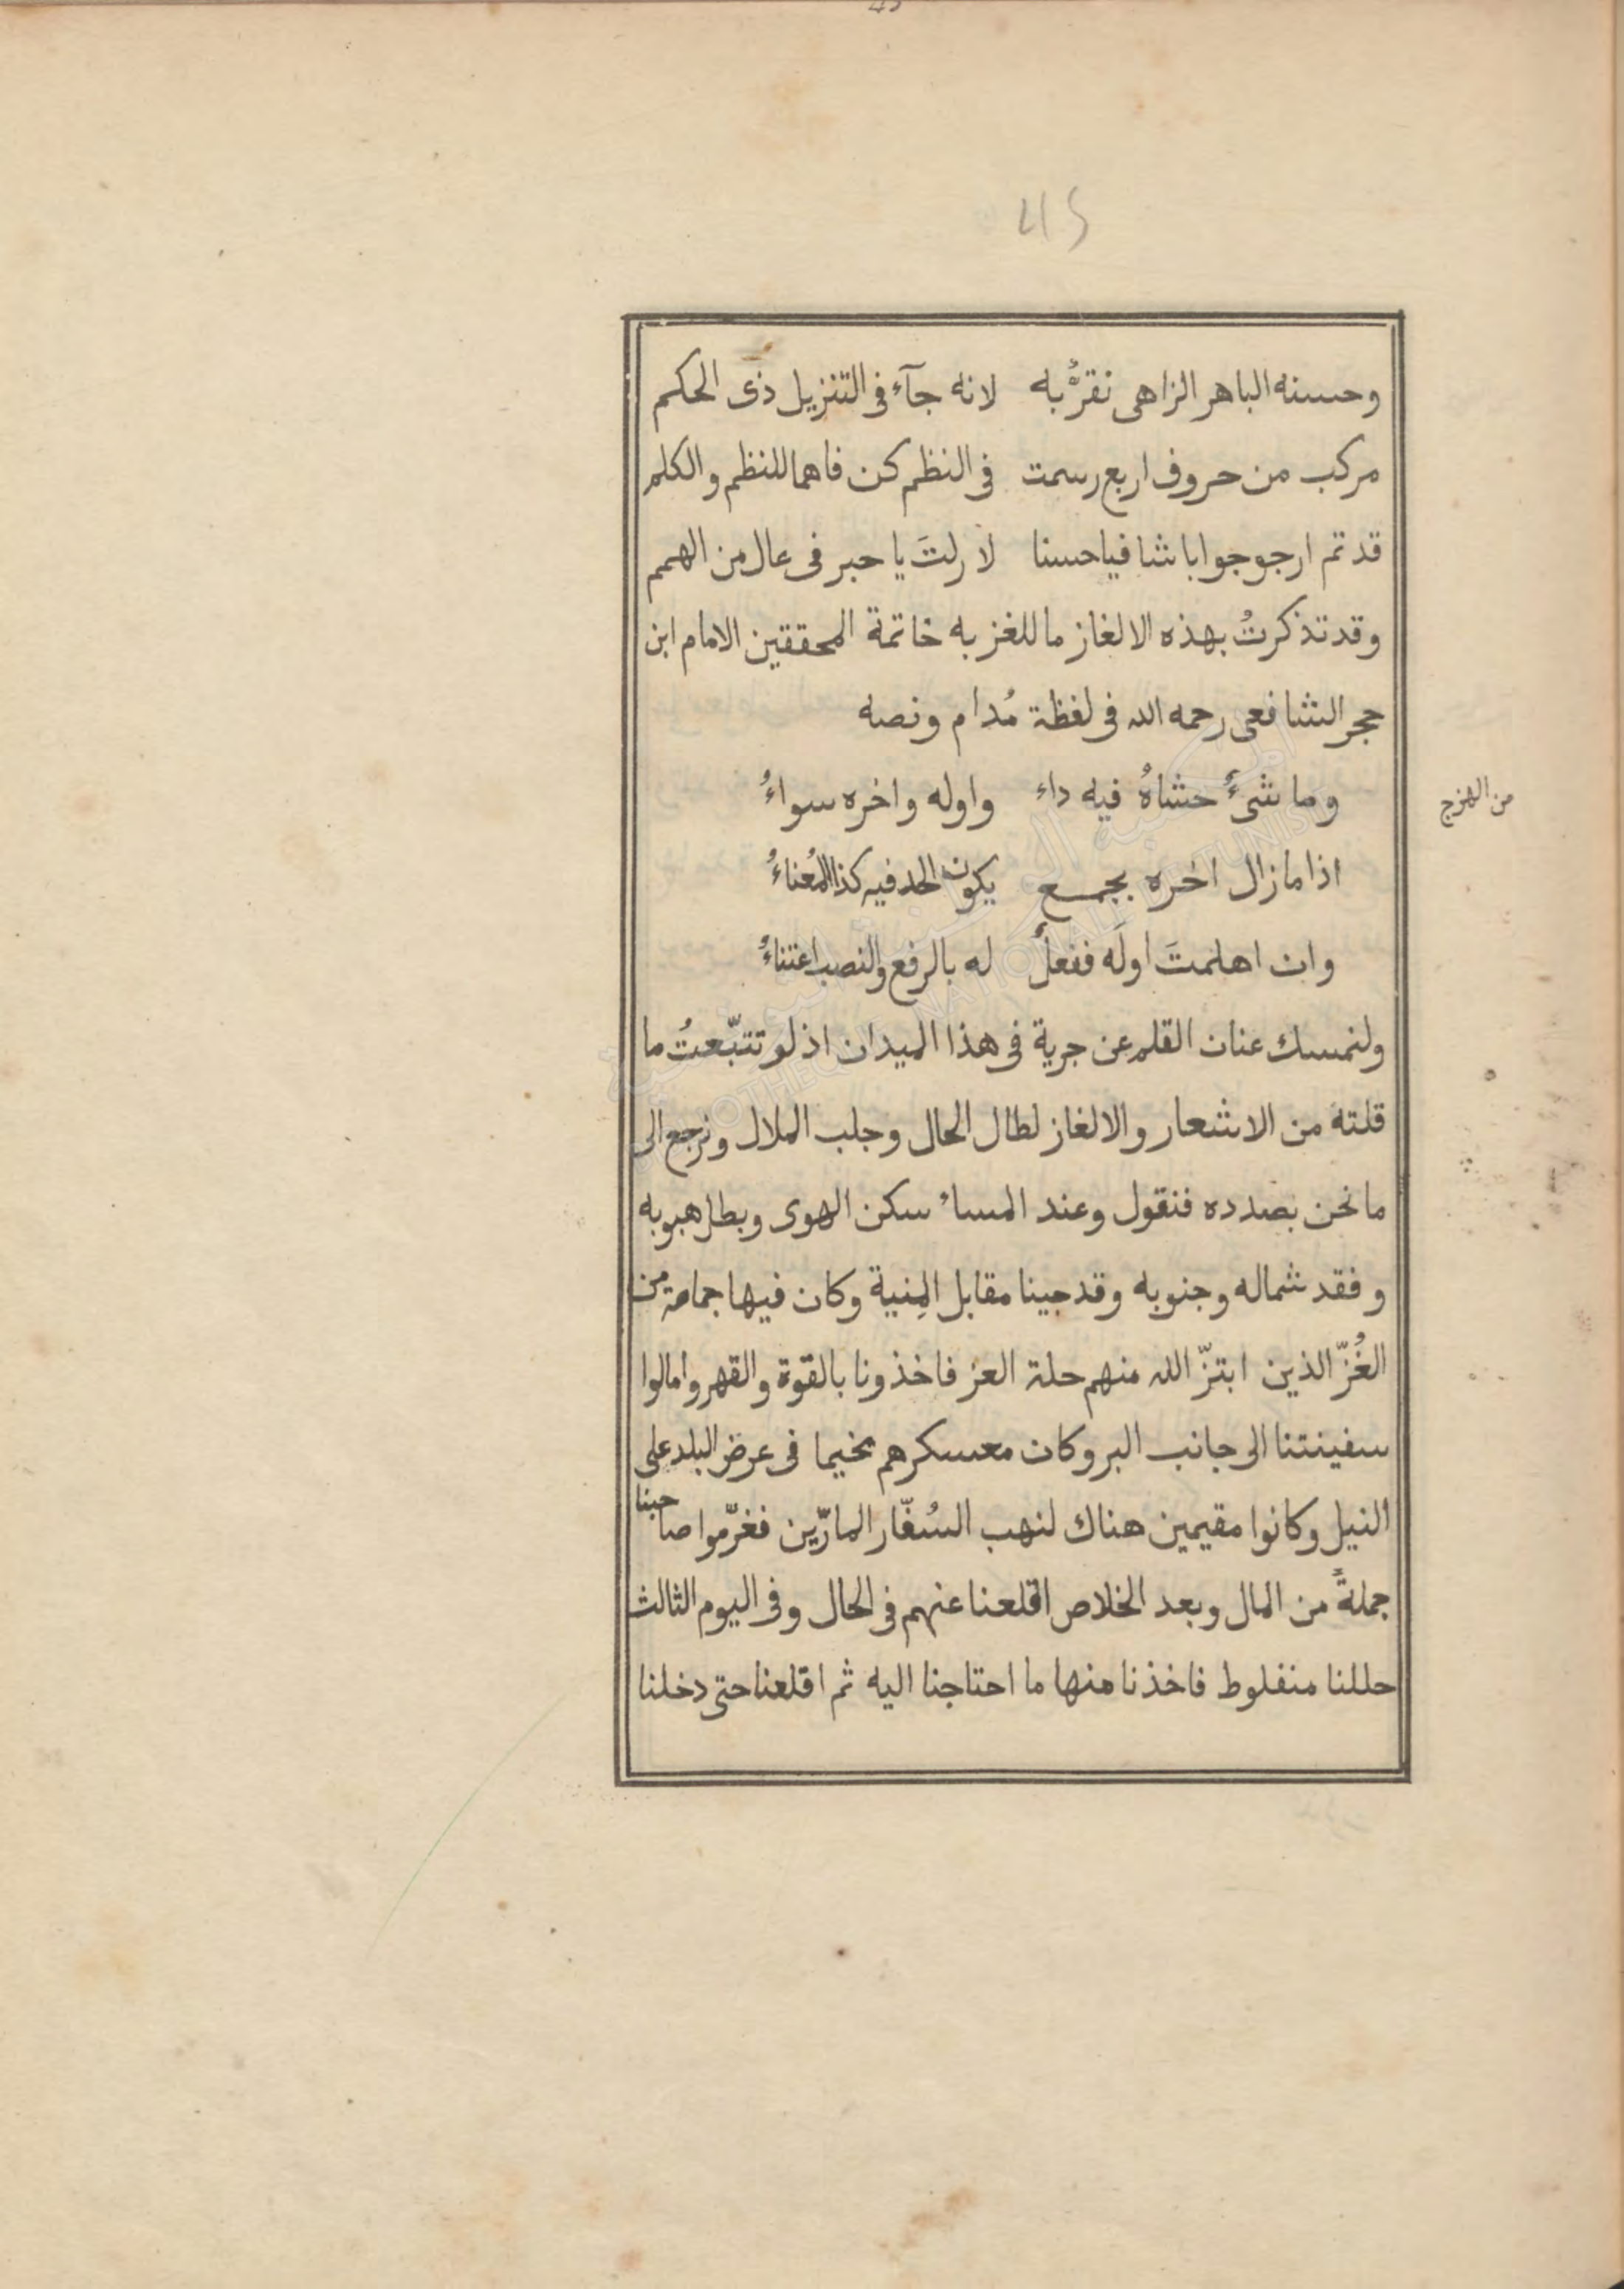 45
وحسنه الباهر الزاهى نقرُّ به لانه جآء فى التنزيل ذى الحكم
مركب من حروف اربع رسمت فى النظم كن فاهما للنظم والكلم
قد تم ارجو جوابا شافيا حسنا لا زلتَ يا حبر فى عال من الهمم
وقد تذكرتُ بهذه الالغاز ما للغز به خاتمة المحققين الامام ابن
حجر الشافعى رحمه الله فى لفظة مُدام ونصه
من الهزج
وما شىءٌ حشاهُ فيه داء واوله واخره سواءُ
اذا ما زال اخره بجمع يكون الحد فيه كذا المُعناءُ
وان اهلمتَ اولَه ففعلٌ له بالرفع والنصب اعتناءُ
ولنمسك عنان القلم عن جرية فى هذا الميدان اذ لو تتبّعتُ ما
قلته من الاشعار والالغاز لطال الحال وجلب الملال ونرجع الى
ما نحن بصدده فنقول وعند المساء سكن الهوى وبطل هبوبه
وفقد شماله وجنوبه وقد جينا مقابل المِنية وكان فيها جماعة من
الغُزّ الذين ابتزّ الله منهم حلة العز فاخذونا بالقوة والقهر وامالوا
سفينتنا الى جانب البر وكان معسكرهم مخيما فى عرض البلد على
النيل وكانوا مقيمين هناك لنهب السُفّار المارّين فغرّموا صاحبنا
جملةً من المال وبعد الخلاص اقلعنا عنهم فى الحال وفى اليوم الثالث
حللنا منفلوط فاخذنا منها ما احتاجنا اليه ثم اقلعنا حتى دخلنا